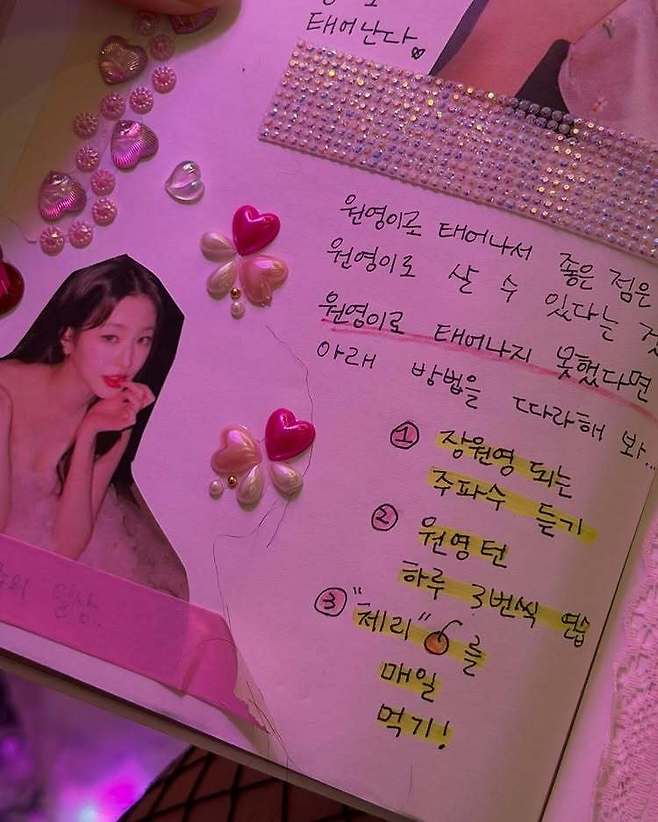 태어난다♡
원영이로 태어나서 좋은 점은
원영이로 살 수 있다는
원영이로 태어나지 못했다면
아래 방법을 따라해 봐...
① 장원영 되는
주파수 듣기
② 원영턴
하루 3번씩 연습
③ "체리"🍒를
매일
먹기!
일상